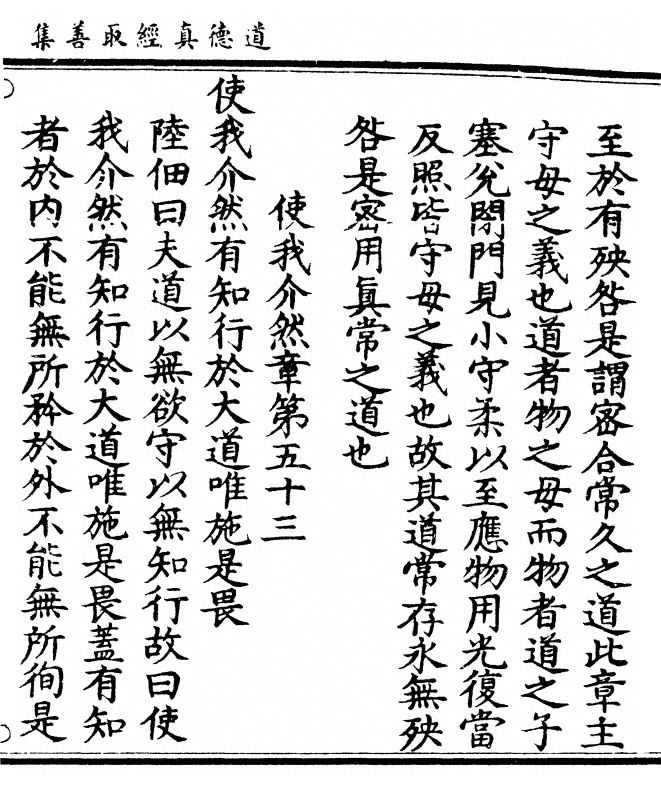 道德真經取善集
至於有殃咎是謂密合常久之道此章主
守母之義也道者物之母而物者道之子
塞兊閉門見小守柔以至應物用光復當
反照皆守母之義也故其道常存永無殃
咎是密用眞常之道也
使我介然章第五十三
使我介然有知行於大道唯施是畏
陸佃曰夫道以無欲守以無知行故曰使
我介然有知行於大道唯施是畏蓋有知
者於内不能無所矜於外不能無所徇是